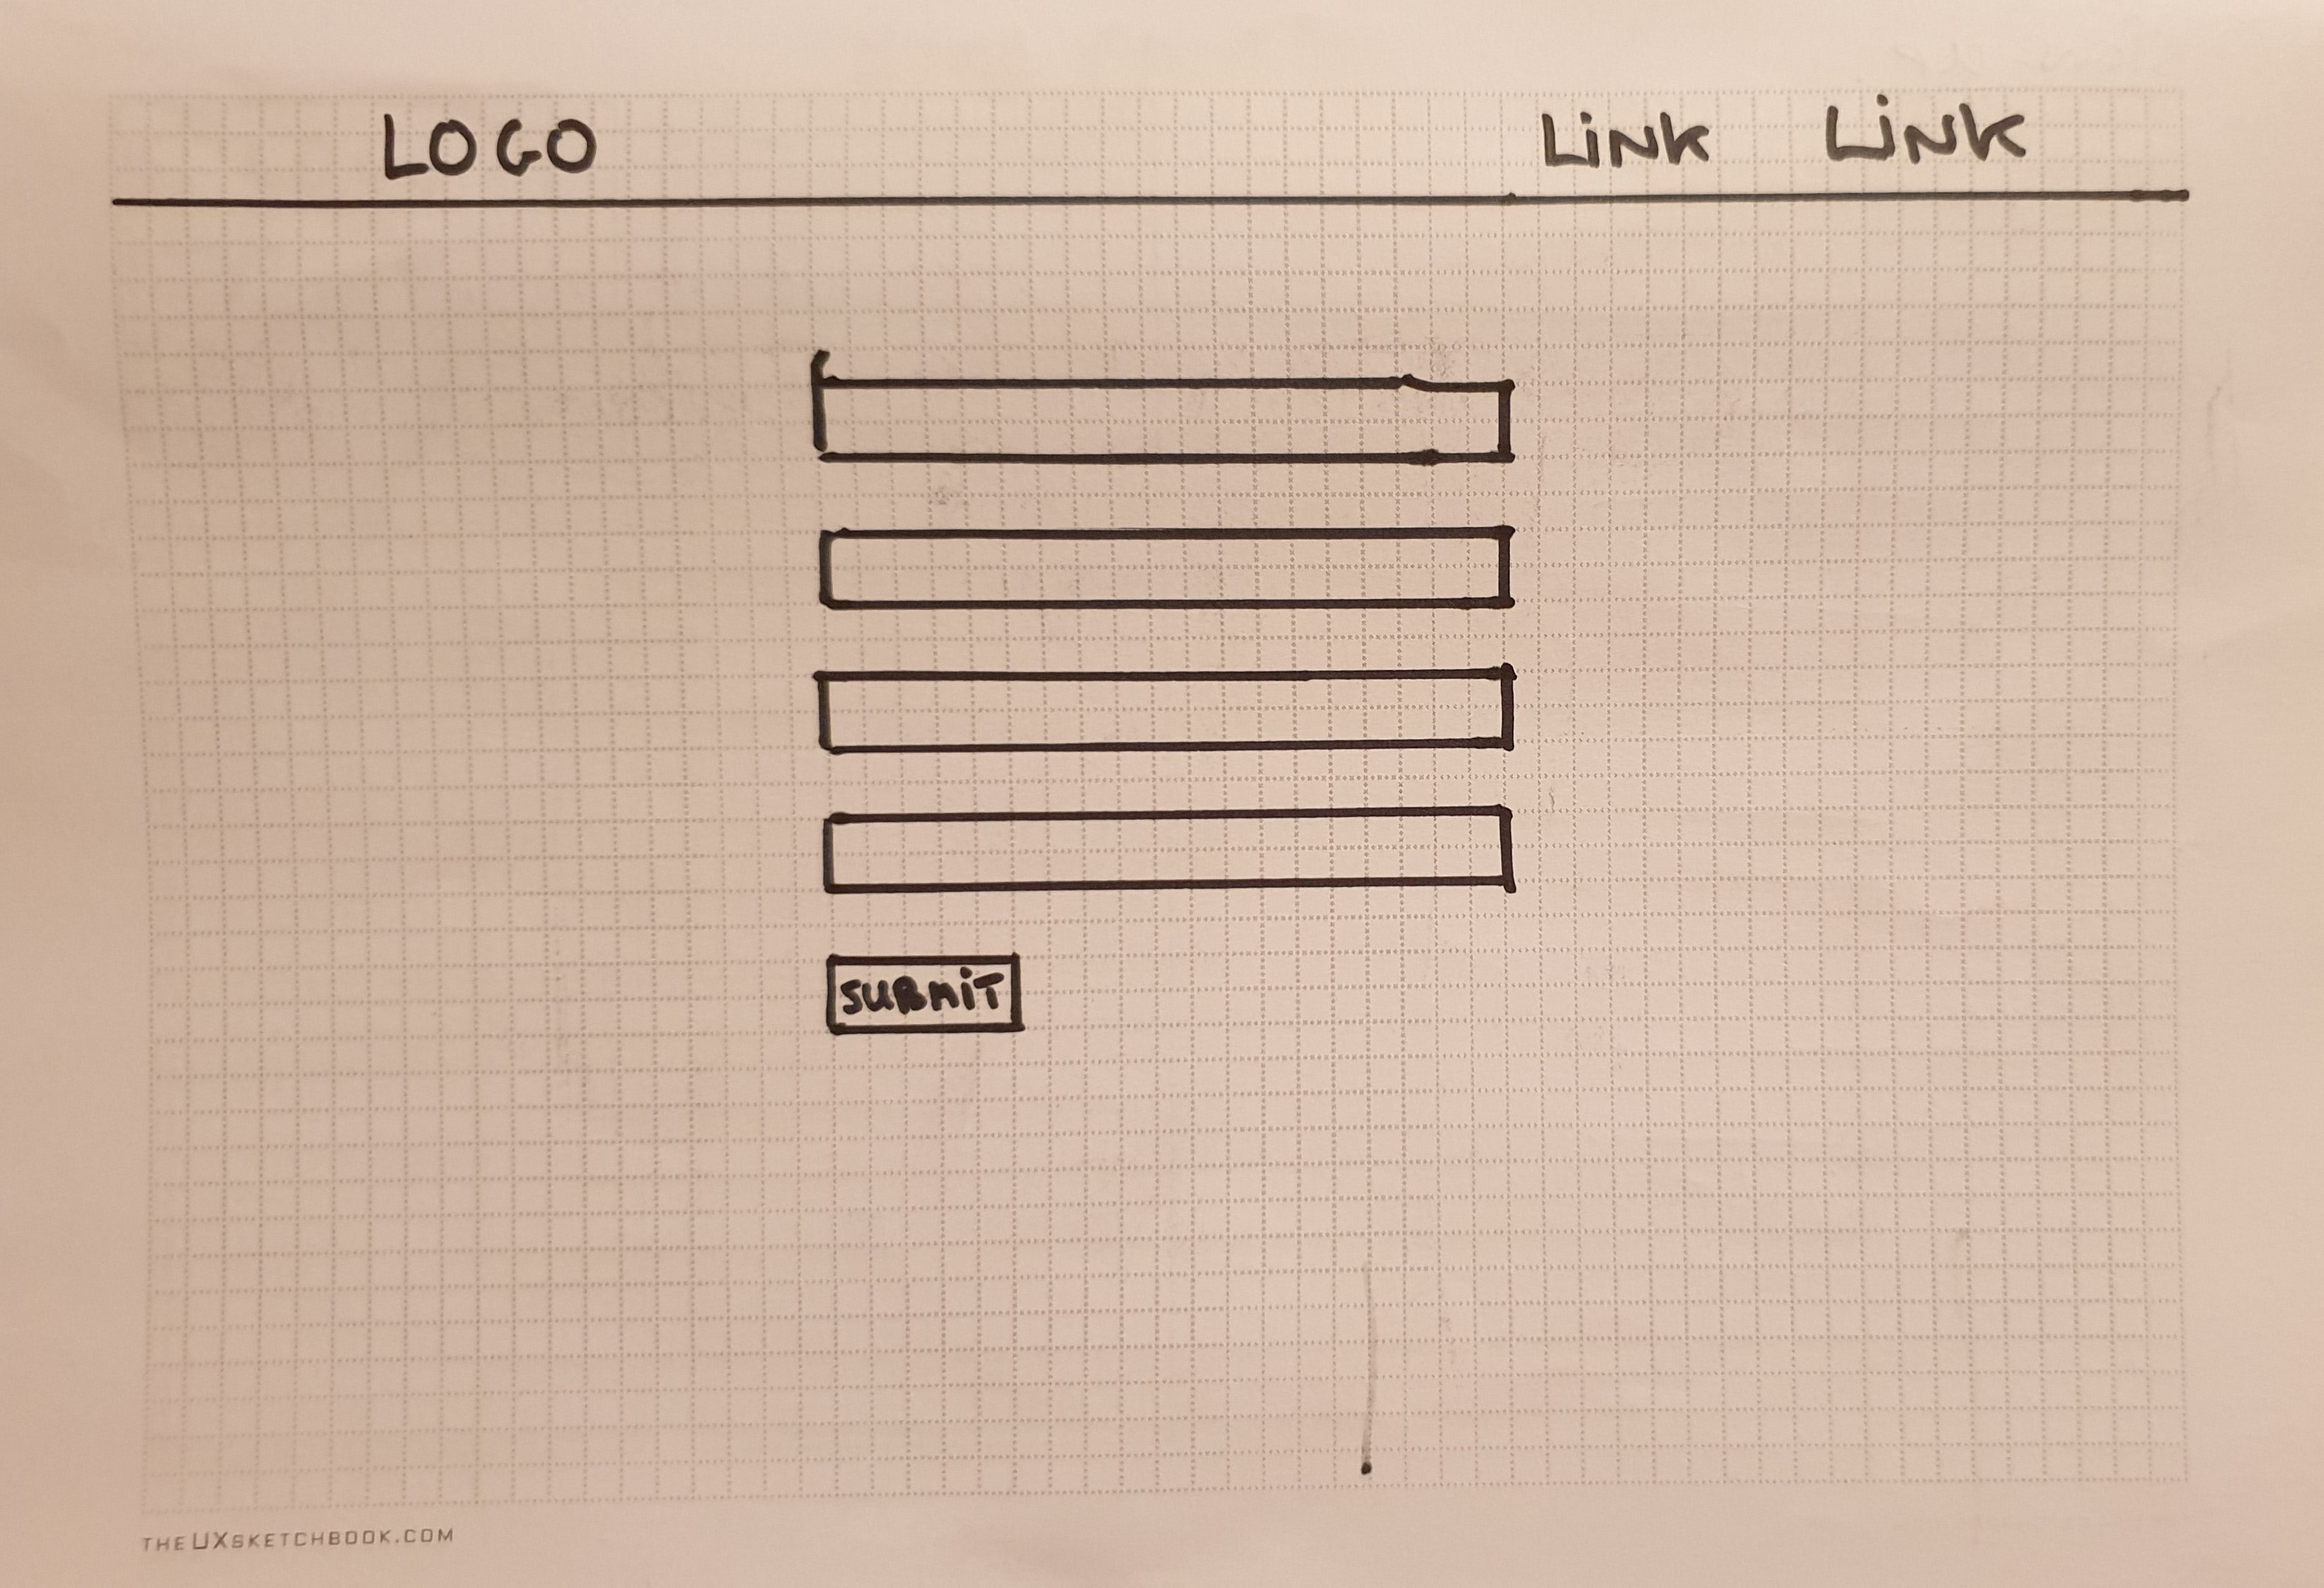 LOGO LiNK LiNK
SUBMiT
THEUXSKETCHBOOK.COM